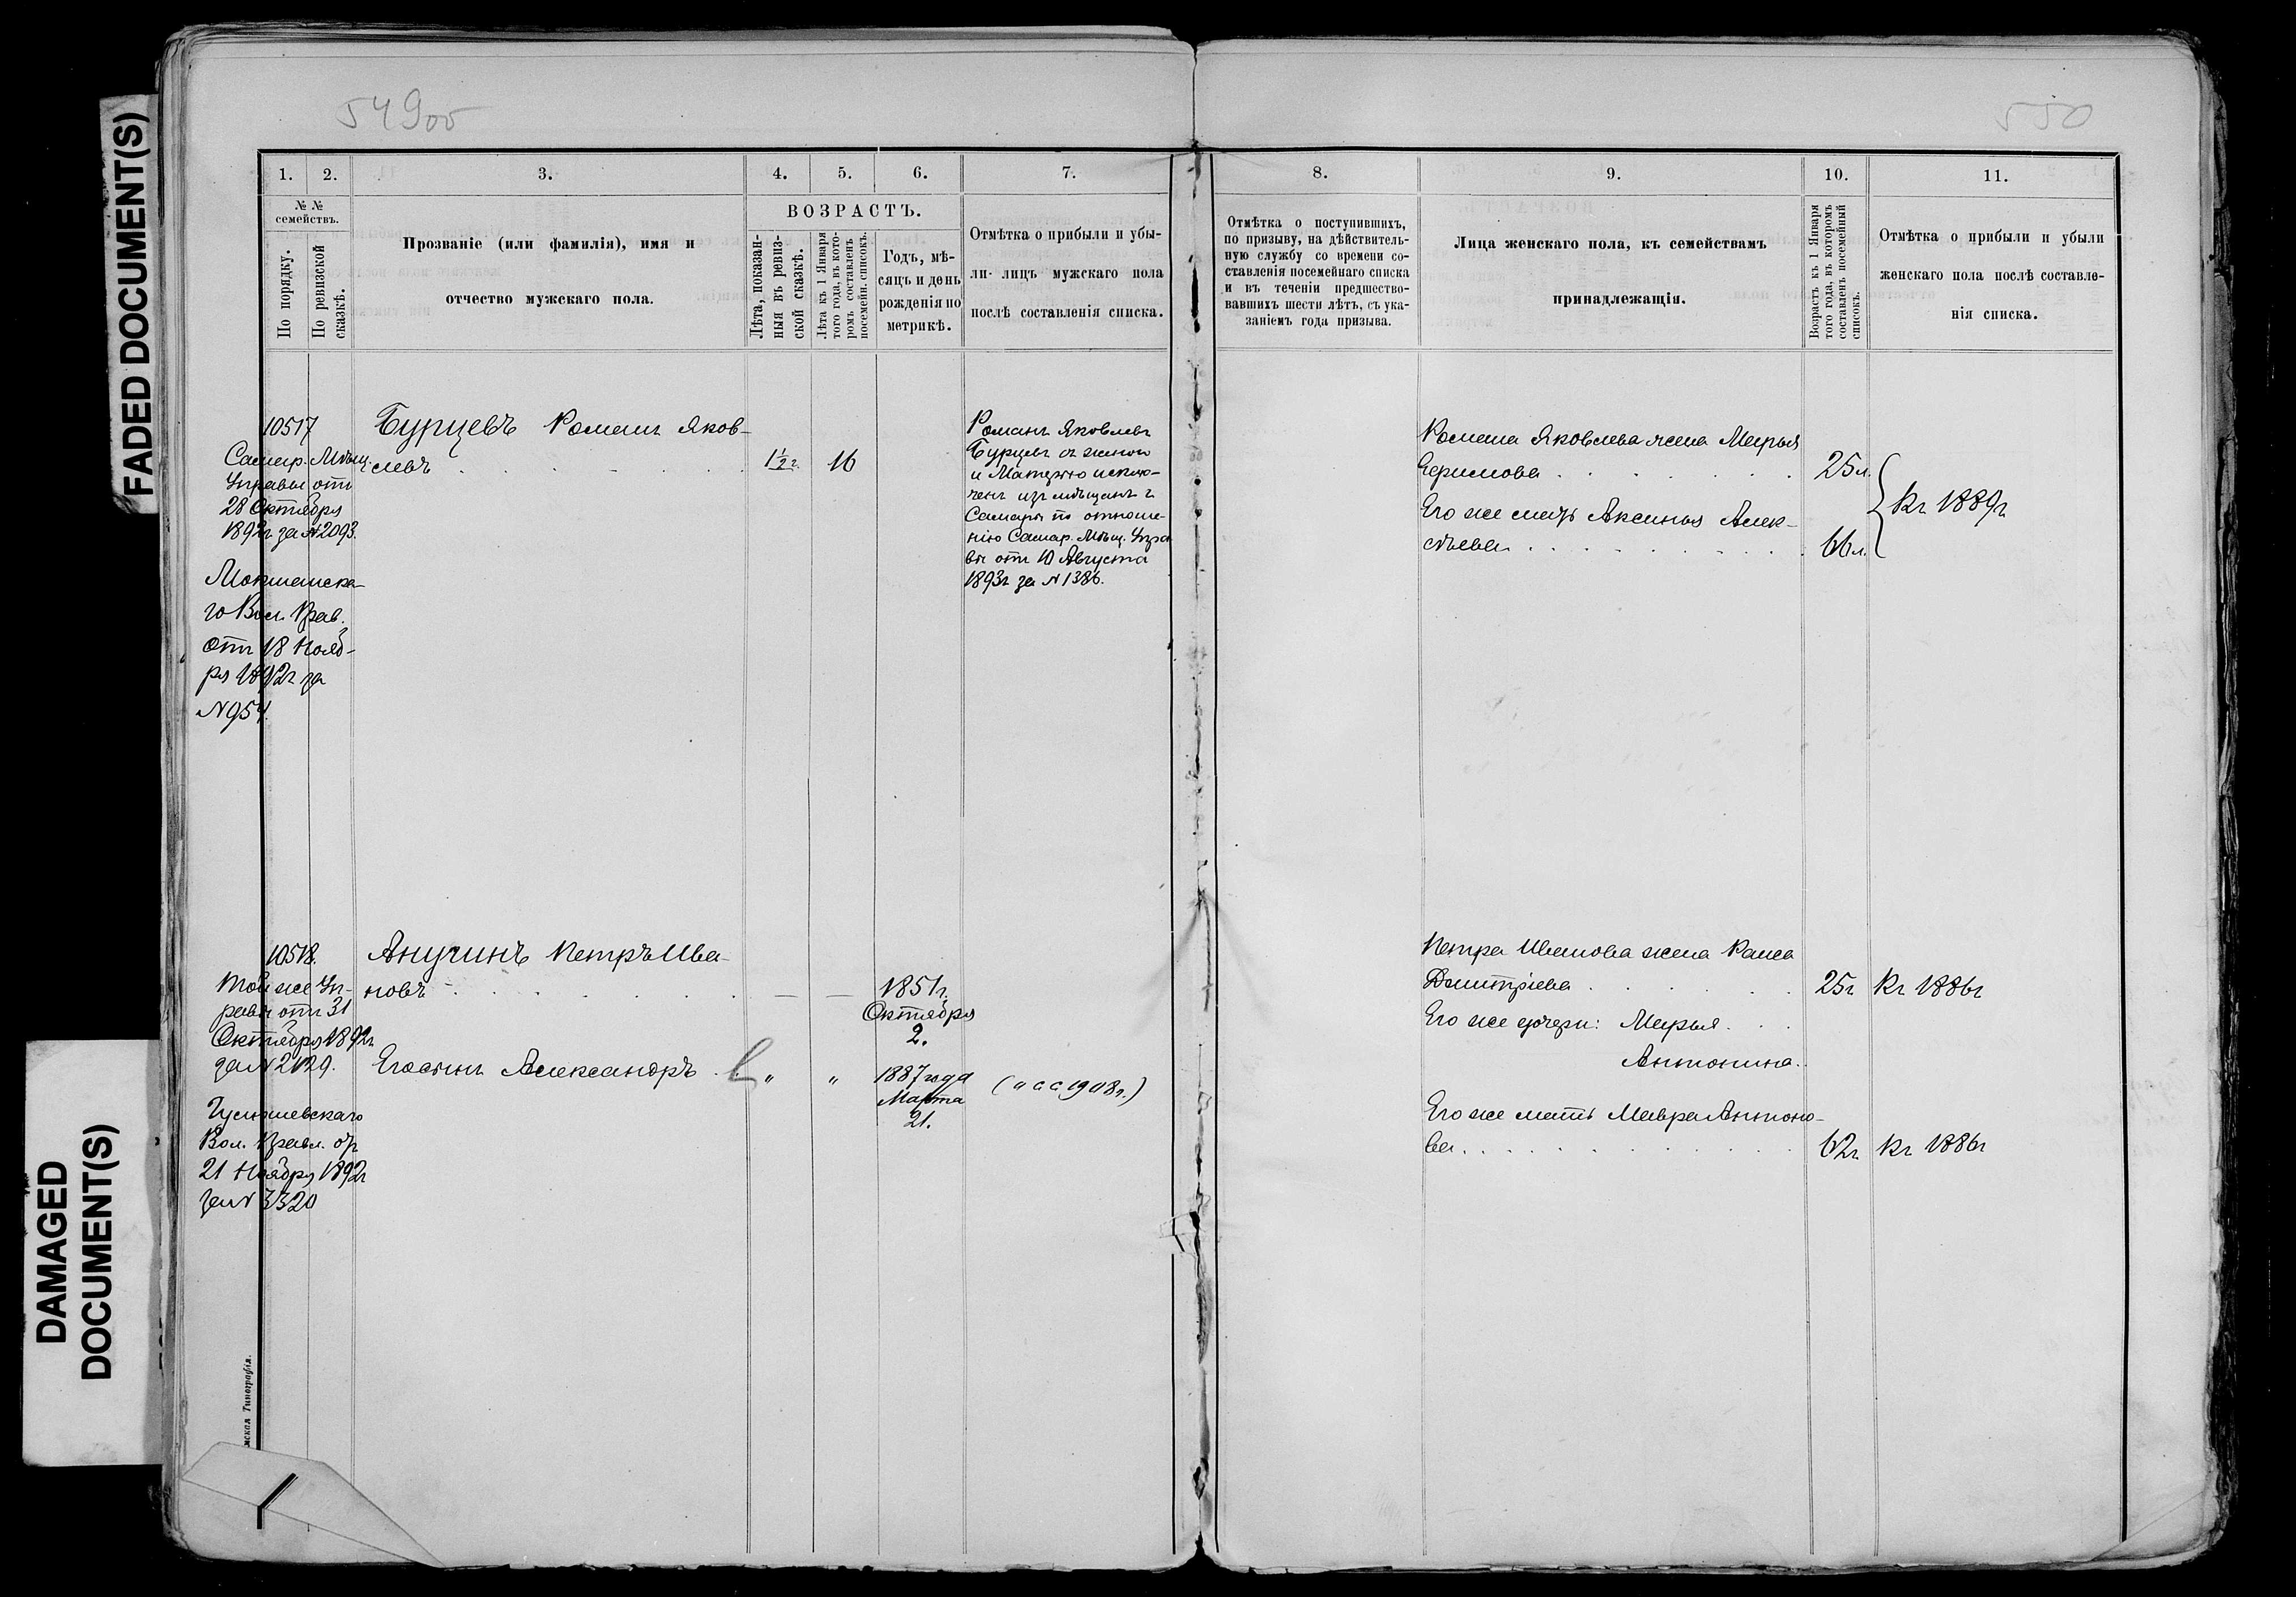 FADED DOCUMENT(S)
DAMAGED
DOCUMENT(S)
549об
550
1. 2. 3. 4. 5. 6. 7.
№ №
семействъ.
По порядку.
По ревизской
сказкѣ.
Прозваніе (или фамилія), имя и
отчество мужскаго пола.
ВОЗРАСТЪ.
Лѣта, показан-
ныя въ ревиз-
ской сказкѣ.
Лѣта къ 1 Января
того года, въ кото-
ромъ составленъ
посемейн. списокъ.
Годъ, мѣ-
сяцъ и день
рожденія по
метрикѣ.
Отмѣтка о прибыли и убы-
ли лицъ мужскаго пола
послѣ составленія списка.
10517
Самар. Мѣщ.
Управы отъ
28 Октября
1892г за №2093.
Мокшанска-
го Вол. Прав.
отъ 18 Нояб-
ря 1892г за
№954.
Бурцевъ Романъ Яков-
левъ
1½ г.
16
Романъ Яковлевъ
Бурцевъ съ женою
и Матерью исклю-
ченъ изъ мѣщанъ г
Самары по отноше-
нію Самар. Мѣщ. Упра
вы отъ 10 Августа
1893г за №1386.
10518.
Той же Уп-
равы отъ 31
Октября 1892г
за №2129.
Вол. Правл. от
21 Ноября 1892г
за № 3320
Анучинъ Петръ Ива-
новъ
1851г.
Октября
2.
Его сынъ Александръ
" "
1887 года
Марта
21.
1908г.)
мская Типографія.
8. 9. 10. 11.
Отмѣтка о поступившихъ,
по призыву, на дѣйствитель-
ную службу со времени со-
ставленія посемейнаго списка
и въ теченіи предшество-
вавшихъ шести лѣтъ, съ ука-
заніемъ года призыва.
Лица женскаго пола, къ семействамъ
принадлежащія.
Возрастъ къ 1 Января
того года, въ которомъ
составленъ посемейный
списокъ.
Отмѣтка о прибыли и убыли
женскаго пола послѣ составле-
нія списка.
Романа Яковлева жена Марья
25л.
Его же мать Аксинья Алек-
сѣева
66л.
Къ 1889г
Петра Иванова жена Раиса
Дмитріева
25г Къ 1886г
Его же дочери: Марья
Антонина.
Его же мать Мавра Антоно-
ва
62г Къ 1886г